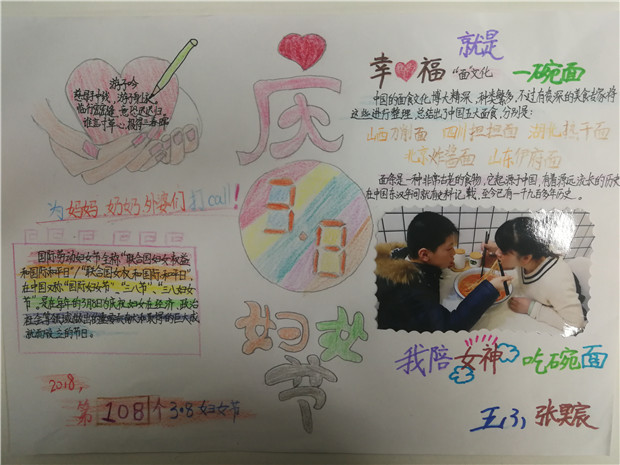 游子吟
慈母手中线，游子身上衣。
临行密密缝，意恐迟迟归。
谁言寸草心，报得三春晖
为妈妈、奶奶、外婆们打call！
国际劳动妇女节全称“联合国妇女权益
和国际和平日”/“联合国女权和国际和平日”。
在中国又称“国际妇女节”、“三八节”、“三八妇女
节”，是在每年的3月8日为庆祝妇女在经济、政治
社会等领域做出的重要贡献和取得的巨大成
就而设立的节日。
2018，
第108个3·8妇女节
庆
3.8
妇女
节
就是
幸福“面文化 一碗面
中国的面食文化博大精深，种类繁多，不过有资深的美食专家将
这些进行整理，总结出了中国五大面食，分别是：
山西刀削面 四川担担面 湖北热干面
北京炸酱面 山东伊府面
面条是一种非常古老的食物，它起源于中国，有着源远流长的历史
在中国东汉年间就有史料记载，至今已有一千九百多年历史。
我陪女神吃碗面
五，3， 张昊宸